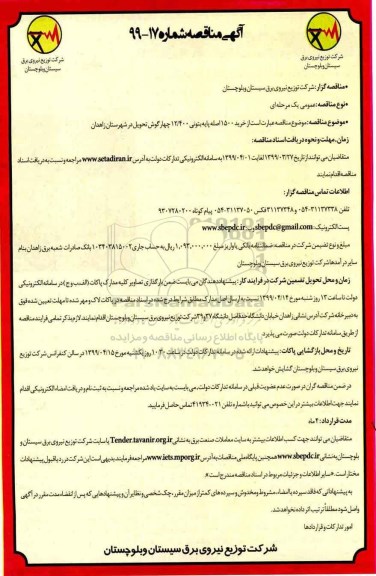 آگهی مناقصه شماره ۱۷-۹۹
شرکت توزیع نیروی برق
سیستان و بلوچستان
شرکت توزیع نیروی برق
سیستان و بلوچستان
•مناقصه گزار: شرکت توزیع نیروی برق سیستان و بلوچستان
•نوع مناقصه: عمومی یک مرحله ای
•موضوع مناقصه: موضوع مناقصه عبارت است از خرید ۱۵۰۰ اصله پایه بتونی ۱۲/۴۰۰ چهارگوش تحویل در شهرستان زاهدان
زمان، مهلت و نحوه دریافت اسناد مناقصه:
متقاضیان می توانند از تاریخ ۱۳۹۹/۰۳/۲۷ لغایت ۱۳۹۹/۰۴/۰۱ به سامانه الکترونیکی تدارکات دولت به آدرس www.setadiran.ir مراجعه و نسبت به دریافت اسناد
مناقصه اقدام نمایند
اطلاعات تماس مناقصه گزار:
تلفن ۳۱۱۳۷۳۳۸-۰۵۴ و ۳۱۱۳۷۲۴۸ فکس ۳۱۱۳۷۰۵۰-۰۵۴ پیام کوتاه ۹۳۰۷۲۸۰۲۰۰
پست الکترونیک: sbepdc@gmail.com وب: www.sbepdc.ir
مبلغ و نوع تضمین شرکت در مناقصه: ضمانتنامه بانکی یا واریز مبلغ ۱،۰۹۳،۰۰۰،۰۰۰ ریال به حساب جاری ۰۱۰۳۴۰۳۸۱۵۰۰۲ بانک صادرات شعبه برق زاهدان بنام
سایر درآمدها شرکت توزیع نیروی برق سیستان و بلوچستان
زمان و محل تحویل تضمین شرکت در فرایند کار: پیشنهاد دهندگان می بایست ضمن بارگذاری تصاویر کلیه مدارک پاکات (الف و ب و ج) در سامانه الکترونیکی
دولت تا ساعت ۱۳ روز شنبه مورخ ۱۳۹۹/۰۴/۱۴ نسبت به ارسال اصل مدارک مطابق شرایط درج شده در اسناد مناقصه در پاکات لاک و مهر شده تا مهلت تعیین شده فوق
به دبیرخانه شرکت به آدرس نشانی زاهدان خیابان دانشگاه حدفاصل دانشگاه ۳۷و۳۹ شرکت توزیع نیروی برق سیستان و بلوچستان اقدام نمایند. لازم بذکر تمامی فرآیند مناقصه
از طریق سامانه تدارکات دولت صورت می پذیرد.
تاریخ و محل بازگشایی پاکات: پیشنهادات ارائه شده در سامانه تدارکات دولت از ساعت ۱۰:۳۰ روز یکشنبه مورخ ۱۳۹۹/۰۴/۱۵ در سالن کنفرانس شرکت توزیع
نیروی برق سیستان و بلوچستان گشایش خواهد شد.
در ضمن مناقصه گران در صورت عدم عضویت قبلی در سامانه تدارکات دولت، می بایست به سایت یاد شده مراجعه و نسبت به ثبت نام و دریافت امضاء الکترونیکی اقدام
نمایند جهت اطلاعات بیشتر در این خصوص می توانید با شماره تلفن ۰۲۱-۴۱۹۳۴ تماس حاصل فرمایید.
مدت قرارداد: ۴ ماه
متقاضیان می توانند جهت کسب اطلاعات بیشتر به سایت معاملات صنعت برق به نشانی Tender.tavanir.org.ir یا سایت شرکت توزیع نیروی برق سیستان و
بلوچستان به نشانی www.sbepdc.ir همچنین پایگاه ملی مناقصات به آدرس www.iets.mporg.ir مراجعه فرمایند بدیهی است این شرکت در رد یا قبول پیشنهادات
مختار است. «سایر اطلاعات و جزئیات مربوط در اسناد مناقصه مندرج است».
به پیشنهاداتی که فاقد سپرده یا امضاء، مشروط و مخدوش و سپرده های کمتر از میزان مقرر، چک شخصی و نظایر آن و پیشنهادهایی که پس از انقضاء مدت مقرر در آگهی
واصل شود مطلقاً ترتیب اثر داده نخواهد شد.
امور تدارکات و قراردادها
شرکت توزیع نیروی برق سیستان و بلوچستان